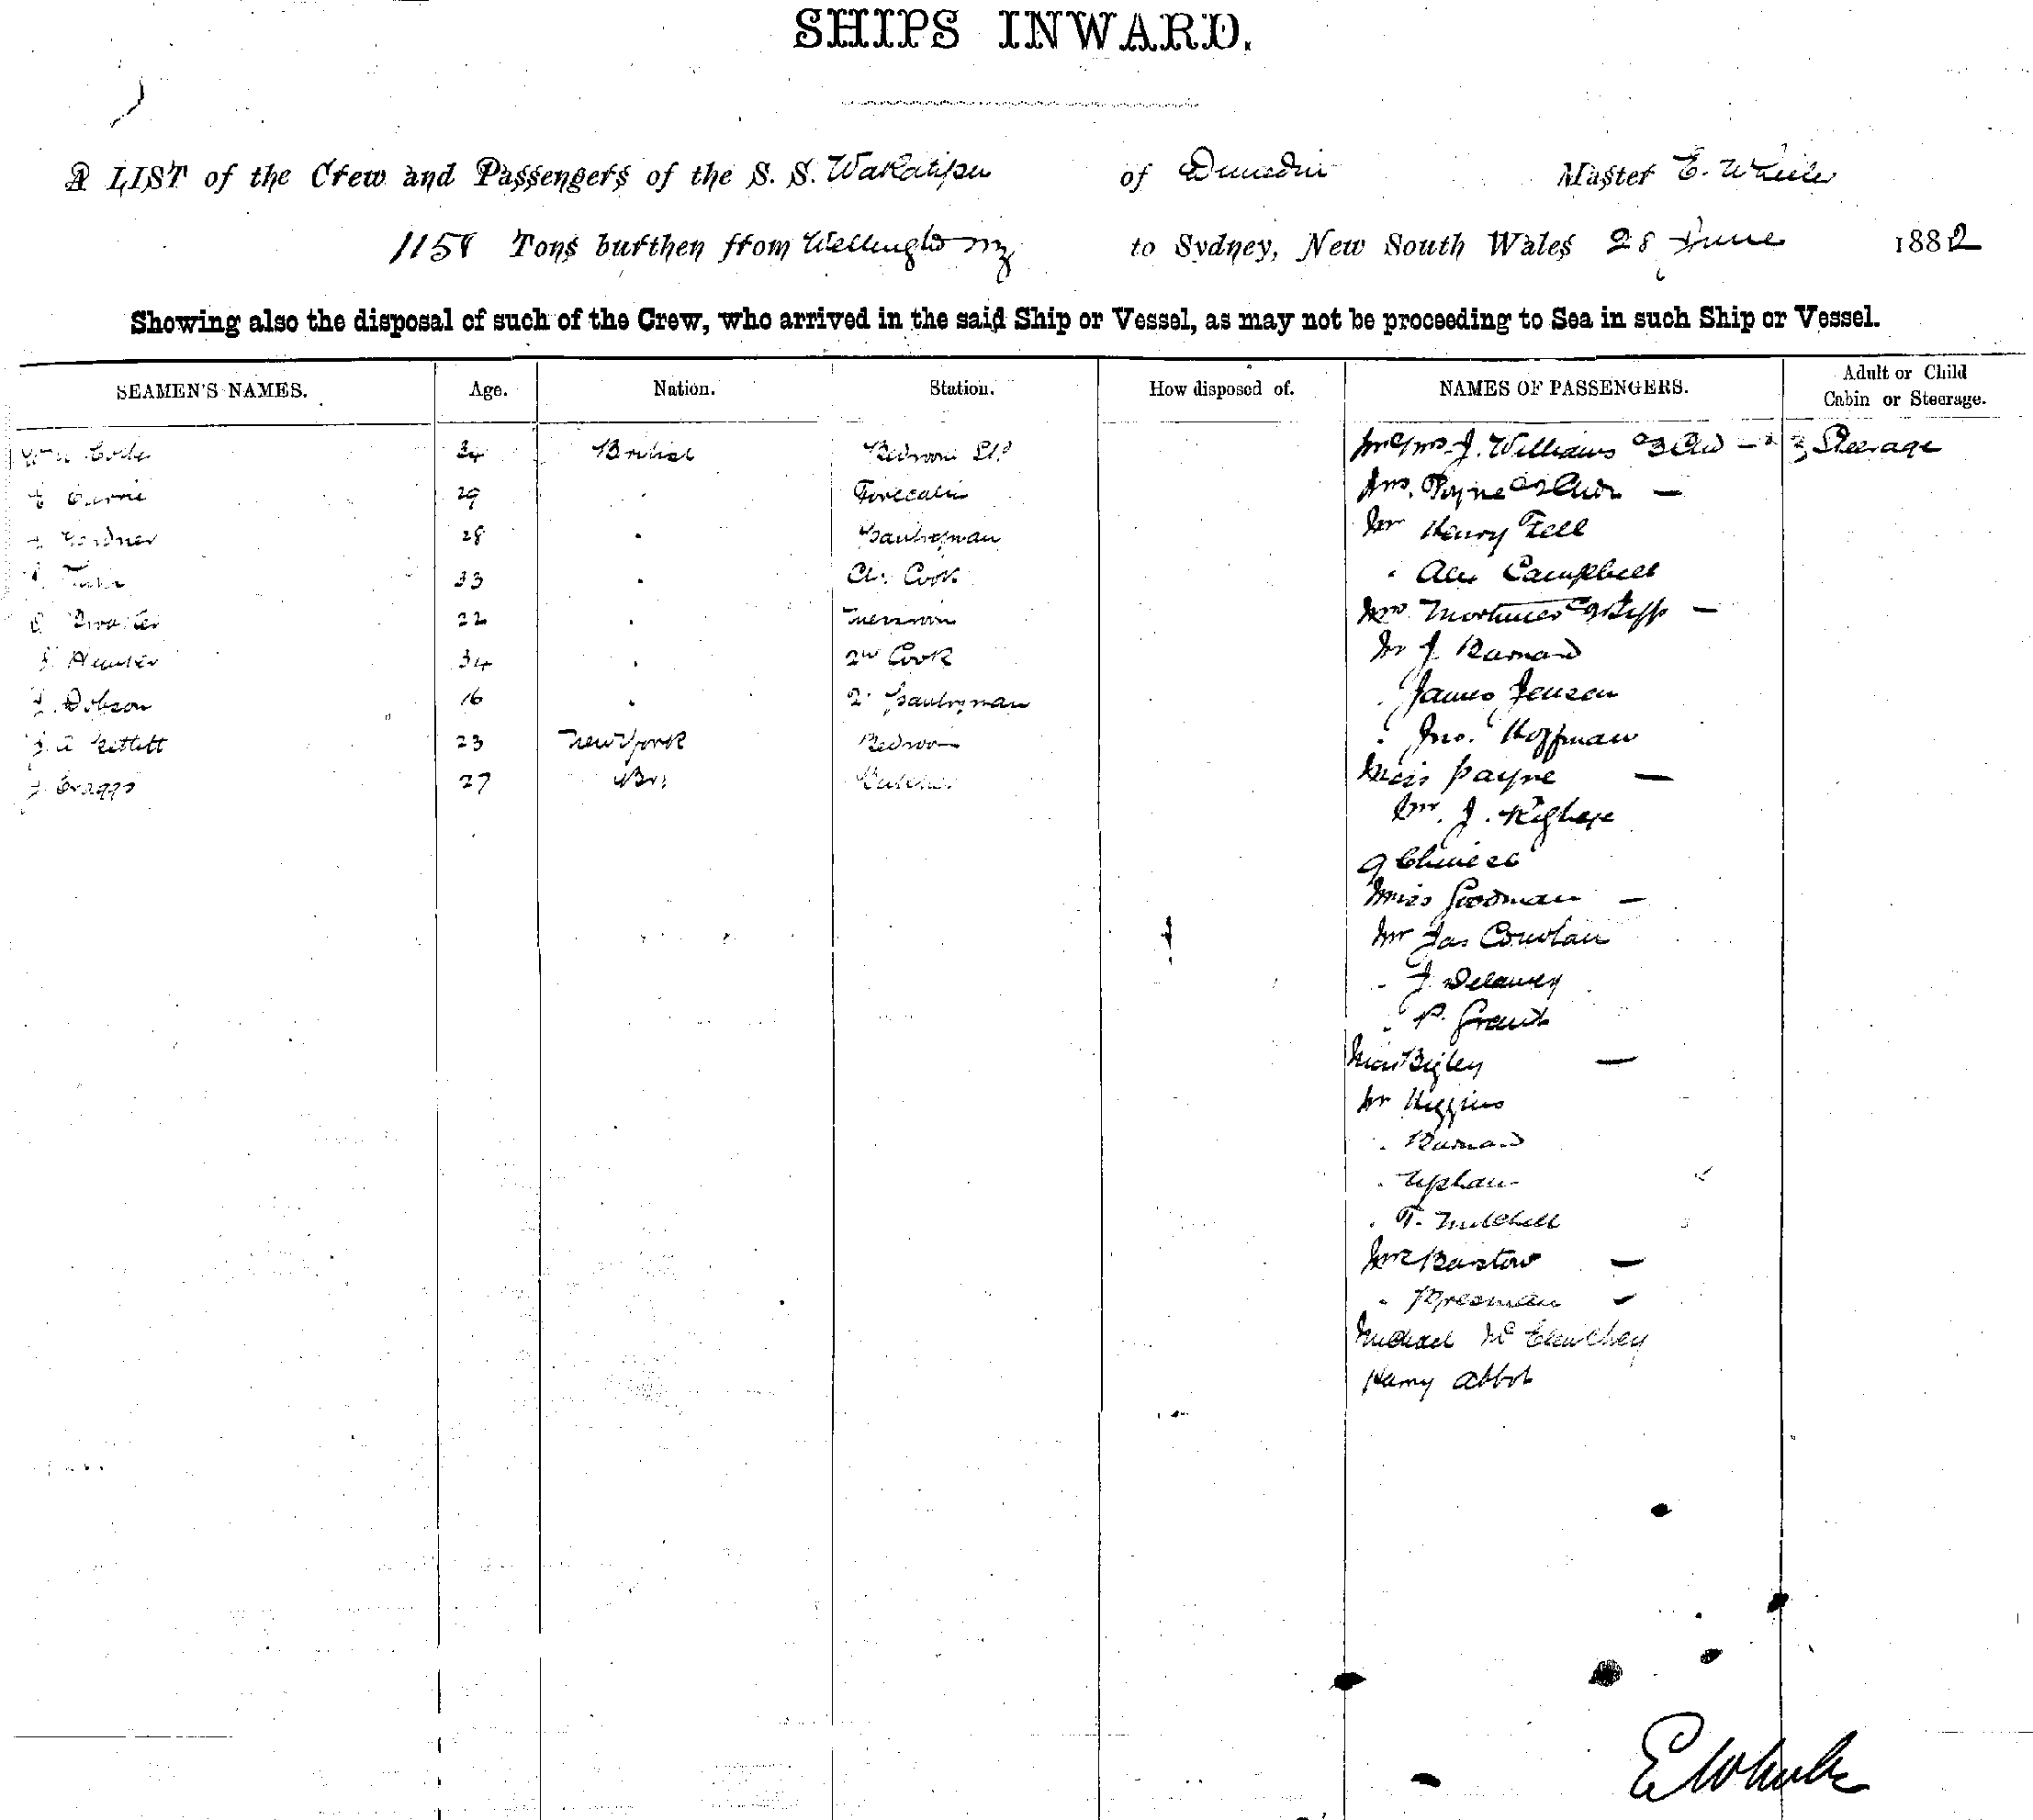 SHIPS INWARD.
A LIST of the Crew and Passengers of the S. S. Wakatipu of Dunedin Master E. Wheeler
1158 Tons burthen from Wellington NZ to Sydney, New South Wales 28 June 1882
Showing also the disposal of such of the Crew, who arrived in the said Ship or Vessel, as may not be proceeding to Sea in such Ship or Vessel.
SEAMEN'S NAMES. Age. Nation. Station. How disposed of. NAMES OF PASSENGERS. Adult or Child Cabin or Steerage.
34 British Bedroom Mr & Mrs J. Williams & 3 Chd — Steerage
29 Forecabin Mrs. Payne & 2 Chdn —
Gardner 28 Pantryman Mr Henry Fell
33 Ch. Cook Alex Campbell
22 Messman Mrs Mortimer —
Hunter 34 2nd Cook Mr J. Barnard
Dobson 16 2 Pantryman James Jensen
23 New York Bedroom Jno. Hoffman
Craggs 27 Br. Butcher Miss Payne —
Mr. J.
9 Chinese
Miss Goodman —
Mr Jas
J. Delaney
P. Grant
Bigley —
Mr Higgins
Barnard
Upham
T. Mitchell
Barstow —
Michael Mc
Harry Abbot
E Wheeler